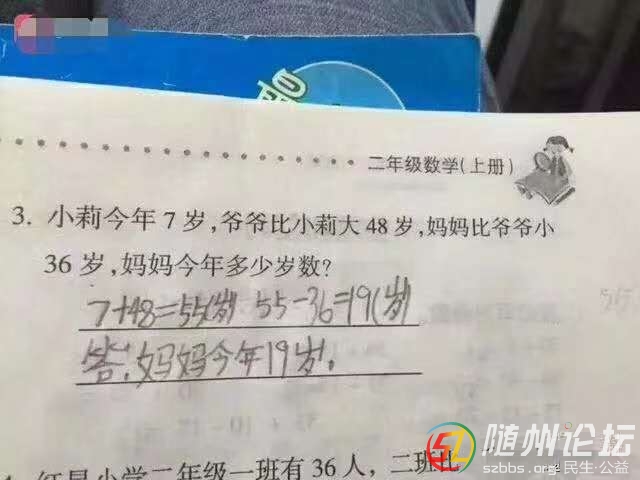 二年级数学(上册)
3. 小莉今年7岁,爷爷比小莉大48岁,妈妈比爷爷小
36岁,妈妈今年多少岁数?
7+48=55(岁) 55-36=19(岁)
答:妈妈今年19岁。
红星小学二年级一班有36人,二班比
随州论坛
szbbs.org 民生·公益